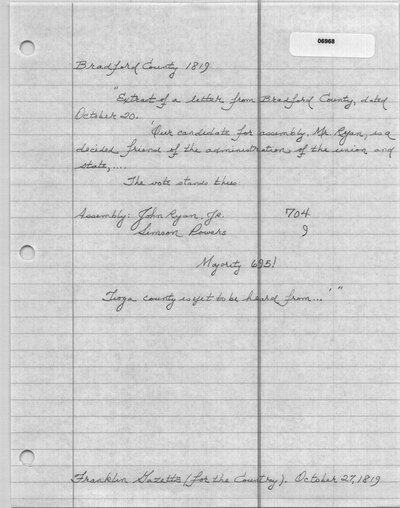 06968
Bradford County 1819
"Extract of a letter from Bradford County, dated
October 20.
'Our candidate for assembly, Mr. Ryan, is a
decided friend of the administration of the union and
state,....
The vote stands thus:
Assembly: John Ryan, Jr. 704
Simeon Powers 9
Majority 695!
Tioga county is yet to be heard from...'"
Franklin Gazette (for the Country). October 27, 1819